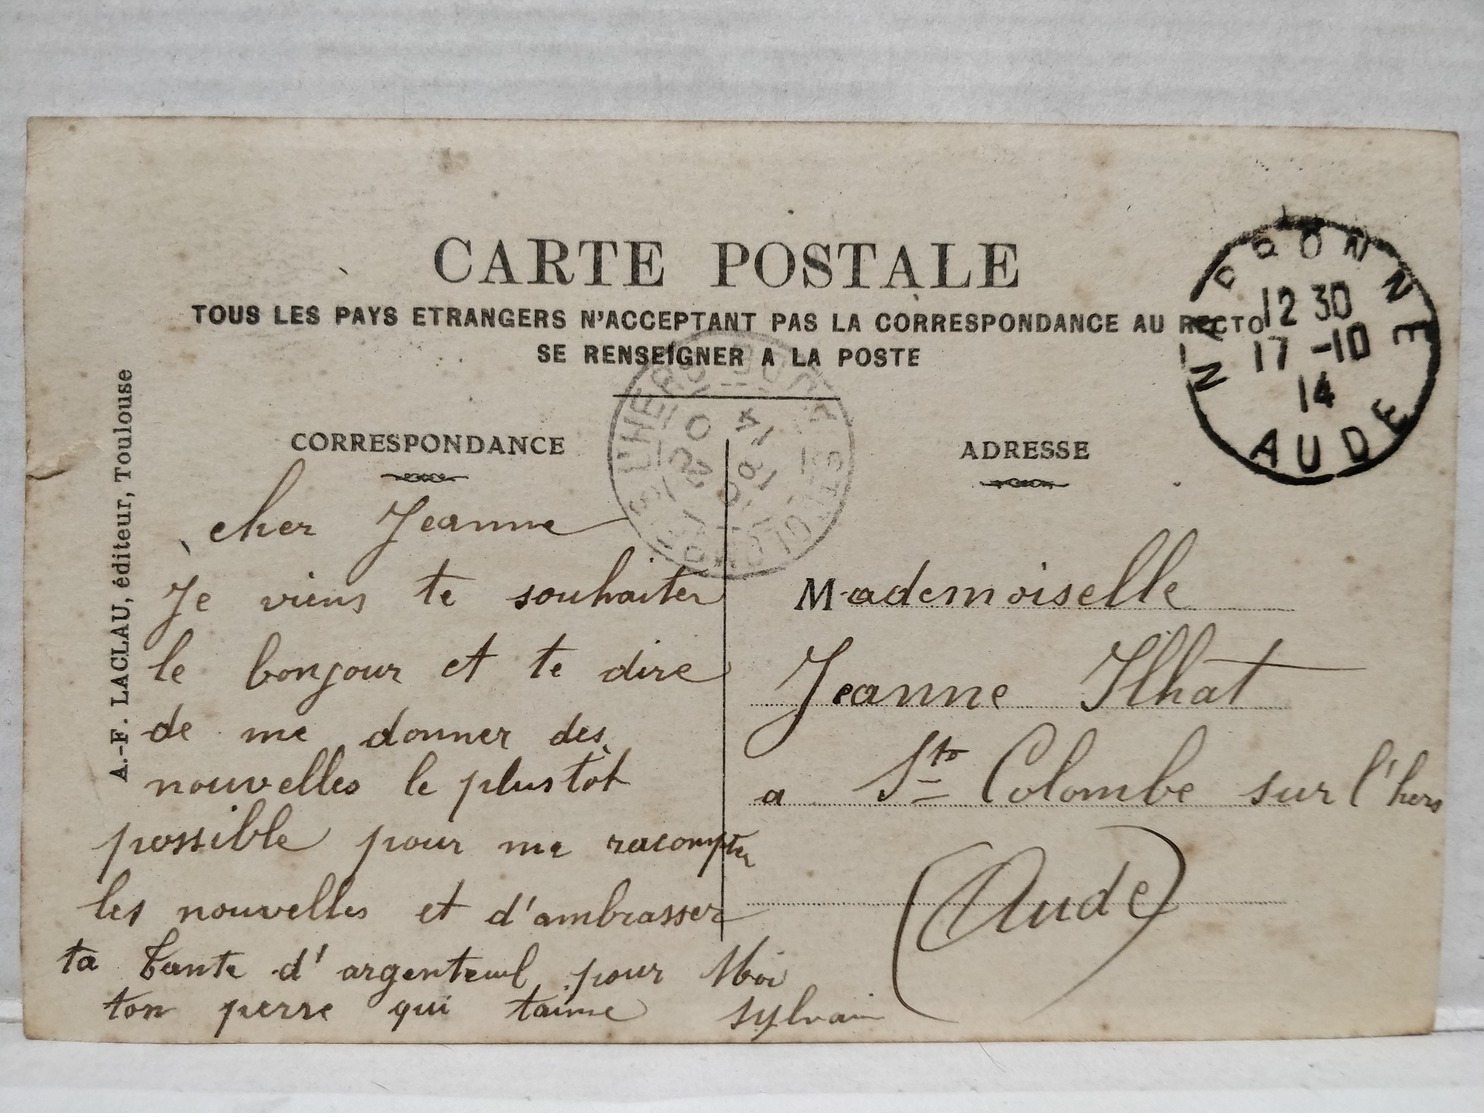 CARTE POSTALE
TOUS LES PAYS ETRANGERS N'ACCEPTANT PAS LA CORRESPONDANCE AU RECTO
SE RENSEIGNER A LA POSTE
NARBONNE
12 30
17 -10
14
AUDE
A.-F. LACLAU, éditeur, Toulouse
CORRESPONDANCE
cher Jeanne
Je viens te souhaiter
le bonjour et te dire
de me donner des
nouvelles le plustôt
possible pour me racompter
les nouvelles et d'ambrasser
ta tante d'argenteuil pour Moi
ton perre qui t'aime Sylvain
ADRESSE
Mademoiselle
Jeanne Ilhat
a Ste Colombe sur l'hers
(Aude)
STE COLOMBE S. L'HERS AUDE
14